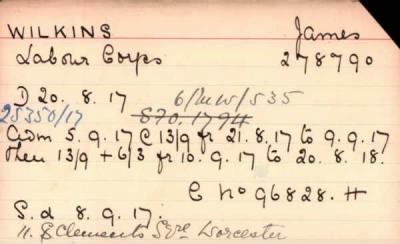 WILKINS James
Labour Corps 278790
D 20. 8. 17 6/MW/535
25350/17 870.1794
Com 5. 9. 17 @ 13/9 fr 21. 8. 17 to 9. 9. 17
then 13/9 + 6/3 fr 10. 9. 17 to 20. 8. 18.
C No 96828. H
S.d 8. 9. 17.
11. St Clements Sqre Worcester